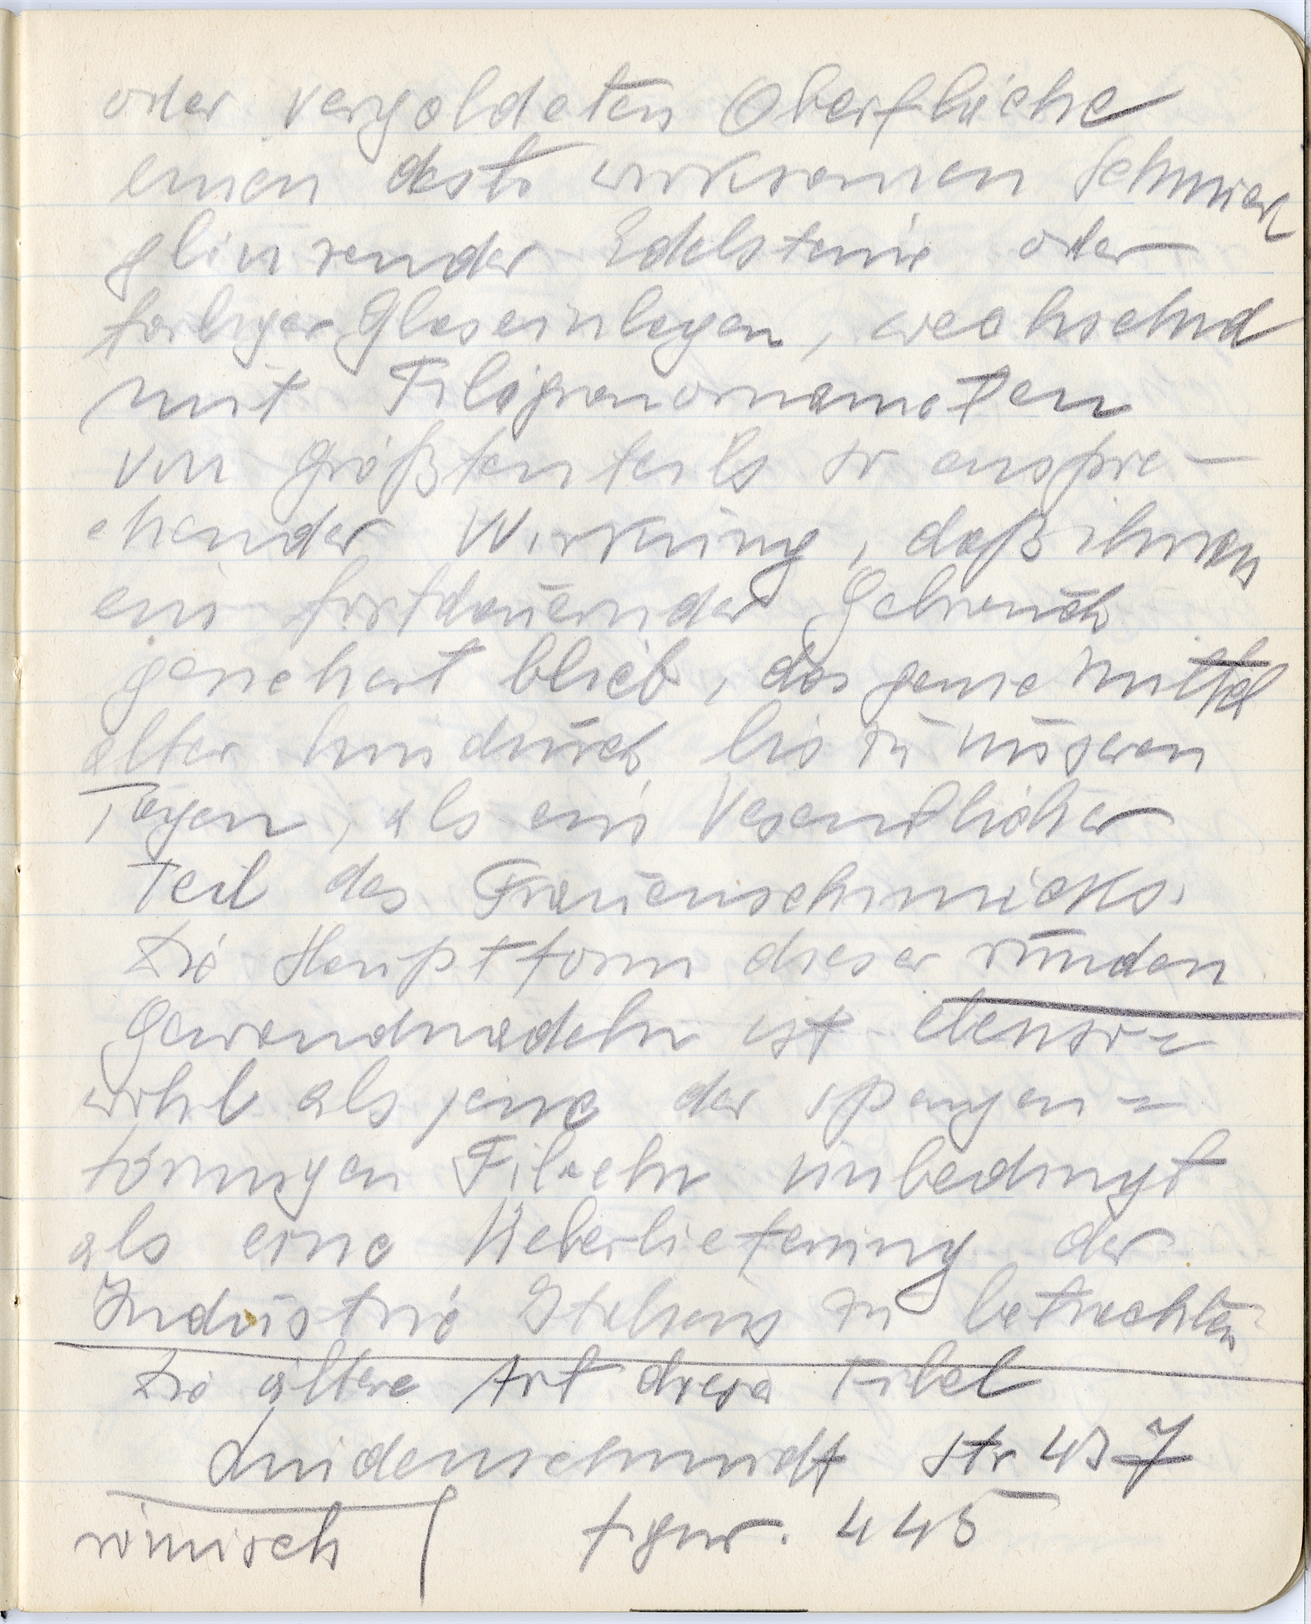 oder vergoldeten Oberfläche
einen desto wirksamen Schmuck
glänzender Edelsteine oder
farbiger Glaseinlagen, wechselnd
mit Filigranornamenten
von größtenteils so anspre-
chender Wirkung, daß ihnen
ein fortdauernder Gebrauch
gesichert blieb, das ganze Mittel
alter hindurch bis zu unseren
Tagen, als ein Wesentlicher
Teil des Frauenschmucks.
Die Hauptform dieser runden
Gewandnadeln ist ebenso=
wohl als jene der spangen=
förmigen Fibeln unbedingt
als eine Ueberlieferung der
Industrie Italiens zu betrachten
Die ältere Art dieser Fibel
Lindenschmidt Str 437
römisch figur. 445